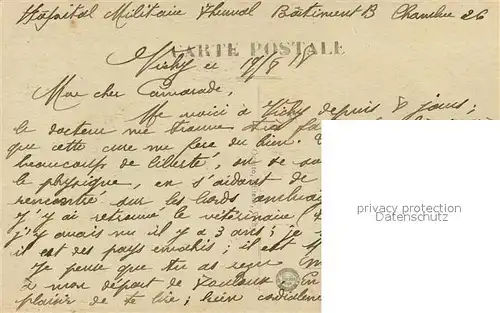 Hôpital Militaire Thermal Bâtiment B Chambre 26
CARTE POSTALE
Vichy le 17/8 18
Mon cher Camarade,
Me voici à Vichy depuis 8 jours ;
le docteur me trouve très
que cette cure me fera du bien.
beaucoup de liberté, on se
le physique, en s'aidant de
rencontré sur les bords
j'y ai retrouvé le vétérinaire
j'y avais vu il y a 3 ans ; je
il est des pays envahis ; il est
Je pense que tu as reçu
à mon départ de Toulouse. En
plaisir de te lire ; bien cordialement
privacy protection
Datenschutz